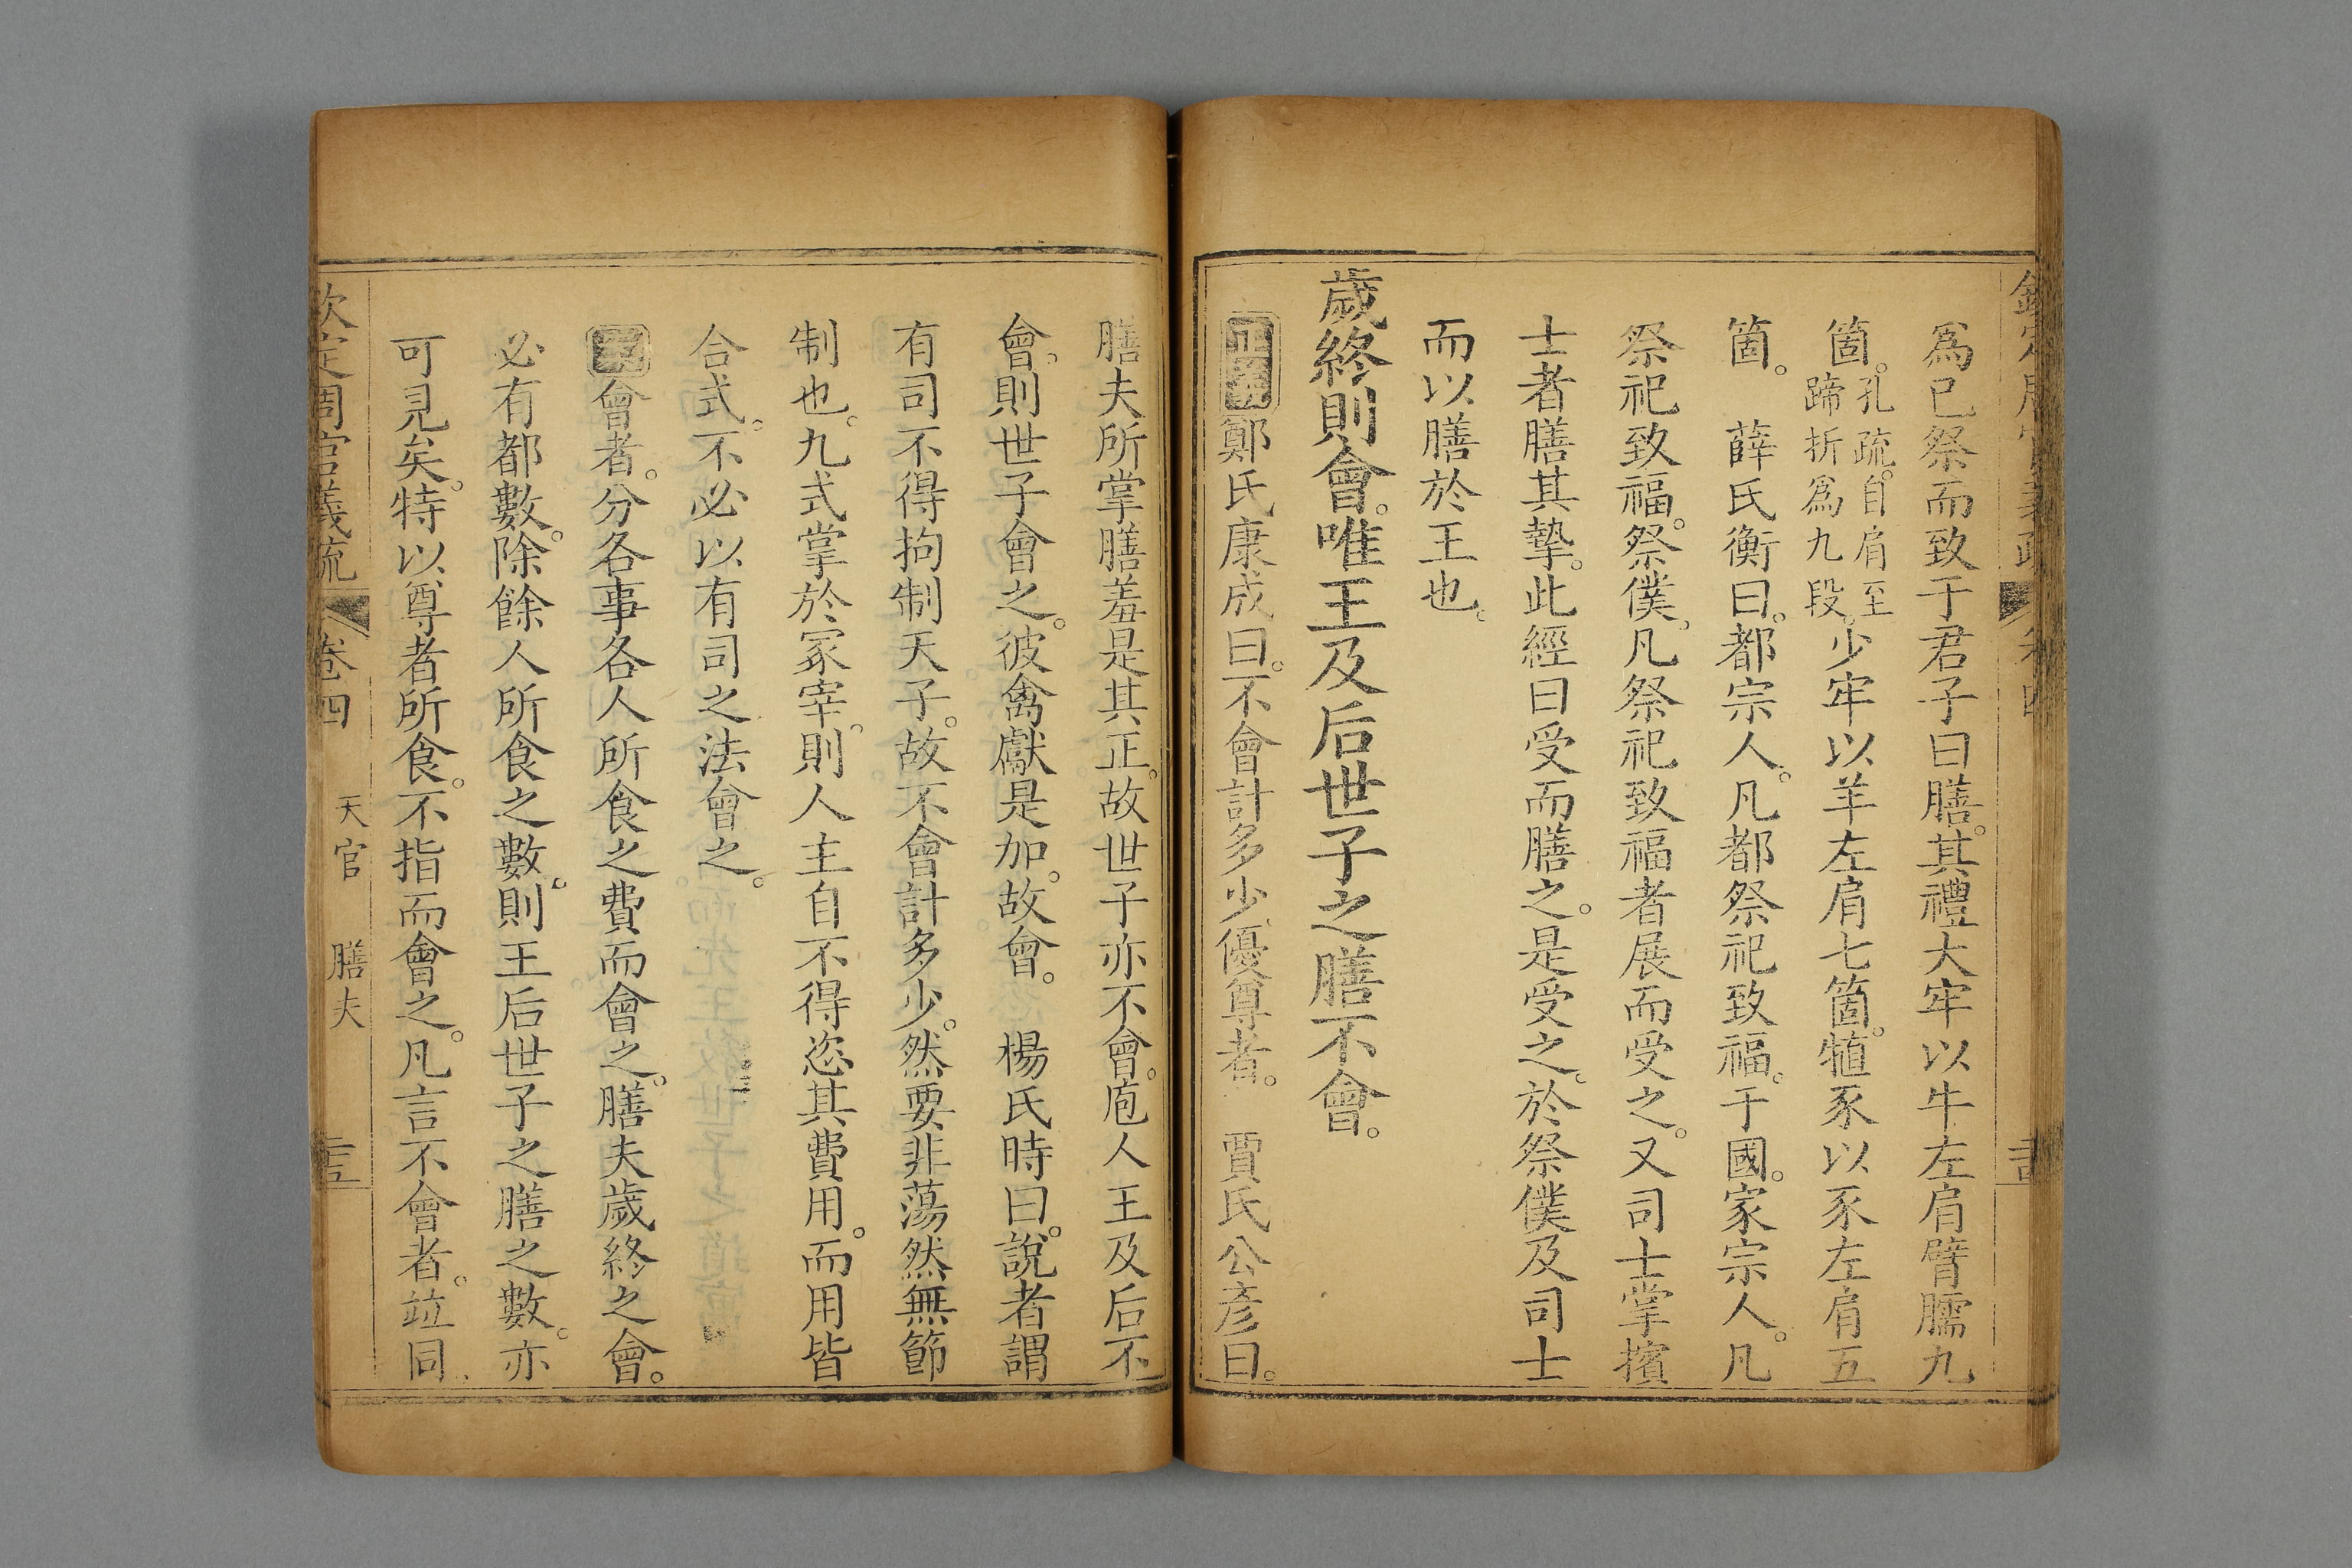 爲已祭而致于君子曰膳。其禮大牢以牛左肩臂臑九
箇。孔疏。自肩至蹄折爲九段。少牢以羊左肩七箇。犆豕以豕左肩五
箇。　薛氏衡曰。都宗人。凡都祭祀致福。于國。家宗人。凡
祭祀致福。祭僕。凡祭祀致福者展而受之。又司士掌擯
士者膳其摯。此經曰受而膳之。是受之。於祭僕及司士
而以膳於王也。
歲終則會。唯王及后世子之膳不會。
鄭氏康成曰。不會計多少。優尊者。　賈氏公彥曰。
膳夫所掌膳羞是其正。故世子亦不會。庖人王及后不
會。則世子會之。彼禽獻是加。故會。　楊氏時曰。說者謂
有司不得拘制天子。故不會計多少。然要非蕩然無節
制也。九式掌於冢宰。則人主自不得恣其費用。而用皆
合式。不必以有司之法會之。
會者。分各事各人所食之費而會之。膳夫歲終之會。
必有都數。除餘人所食之數。則王后世子之膳之數。亦
可見矣。特以尊者所食。不指而會之。凡言不會者。竝同
欽定周官義疏　卷四　天官　膳夫